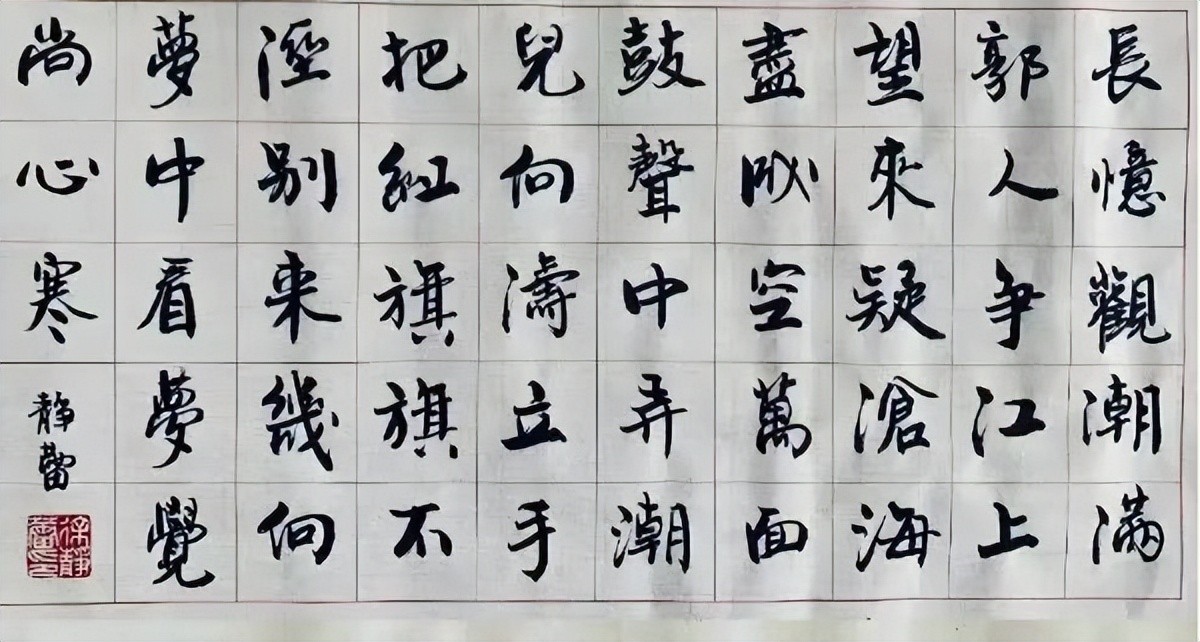 長憶觀潮滿
郭人争江上
望來疑滄海
盡成空萬面
鼓聲中弄潮
兒向濤立手
把紅旗旗不
溼别来幾向
夢中看夢覺
尚心寒
静蕾
徐靜蕾印